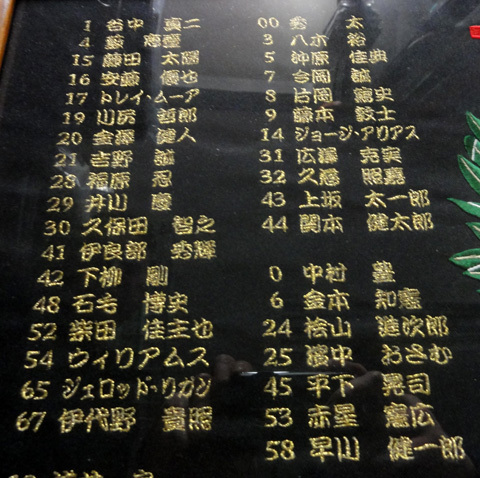 1 谷中 真二
4 藪 恵壹
15 藤田 太陽
16 安藤 優也
17 トレイ・ムーア
19 川尻 哲郎
20 金澤 健人
21 吉野 誠
28 福原 忍
29 井川 慶
30 久保田 智之
41 伊良部 秀輝
42 下柳 剛
48 石毛 博史
52 柴田 佳主也
54 ウィリアムス
65 ジェロッド・リガン
67 伊代野 貴照
00 秀 太
3 八木 裕
5 沖原 佳典
7 今岡 誠
8 片岡 篤史
9 藤本 敦士
14 ジョージ・アリアス
31 広澤 克実
32 久慈 照嘉
43 上坂 太一郎
44 関本 健太郎
0 中村 豊
6 金本 知憲
24 桧山 進次郎
25 濱中 おさむ
45 平下 晃司
53 赤星 憲広
58 早川 健一郎